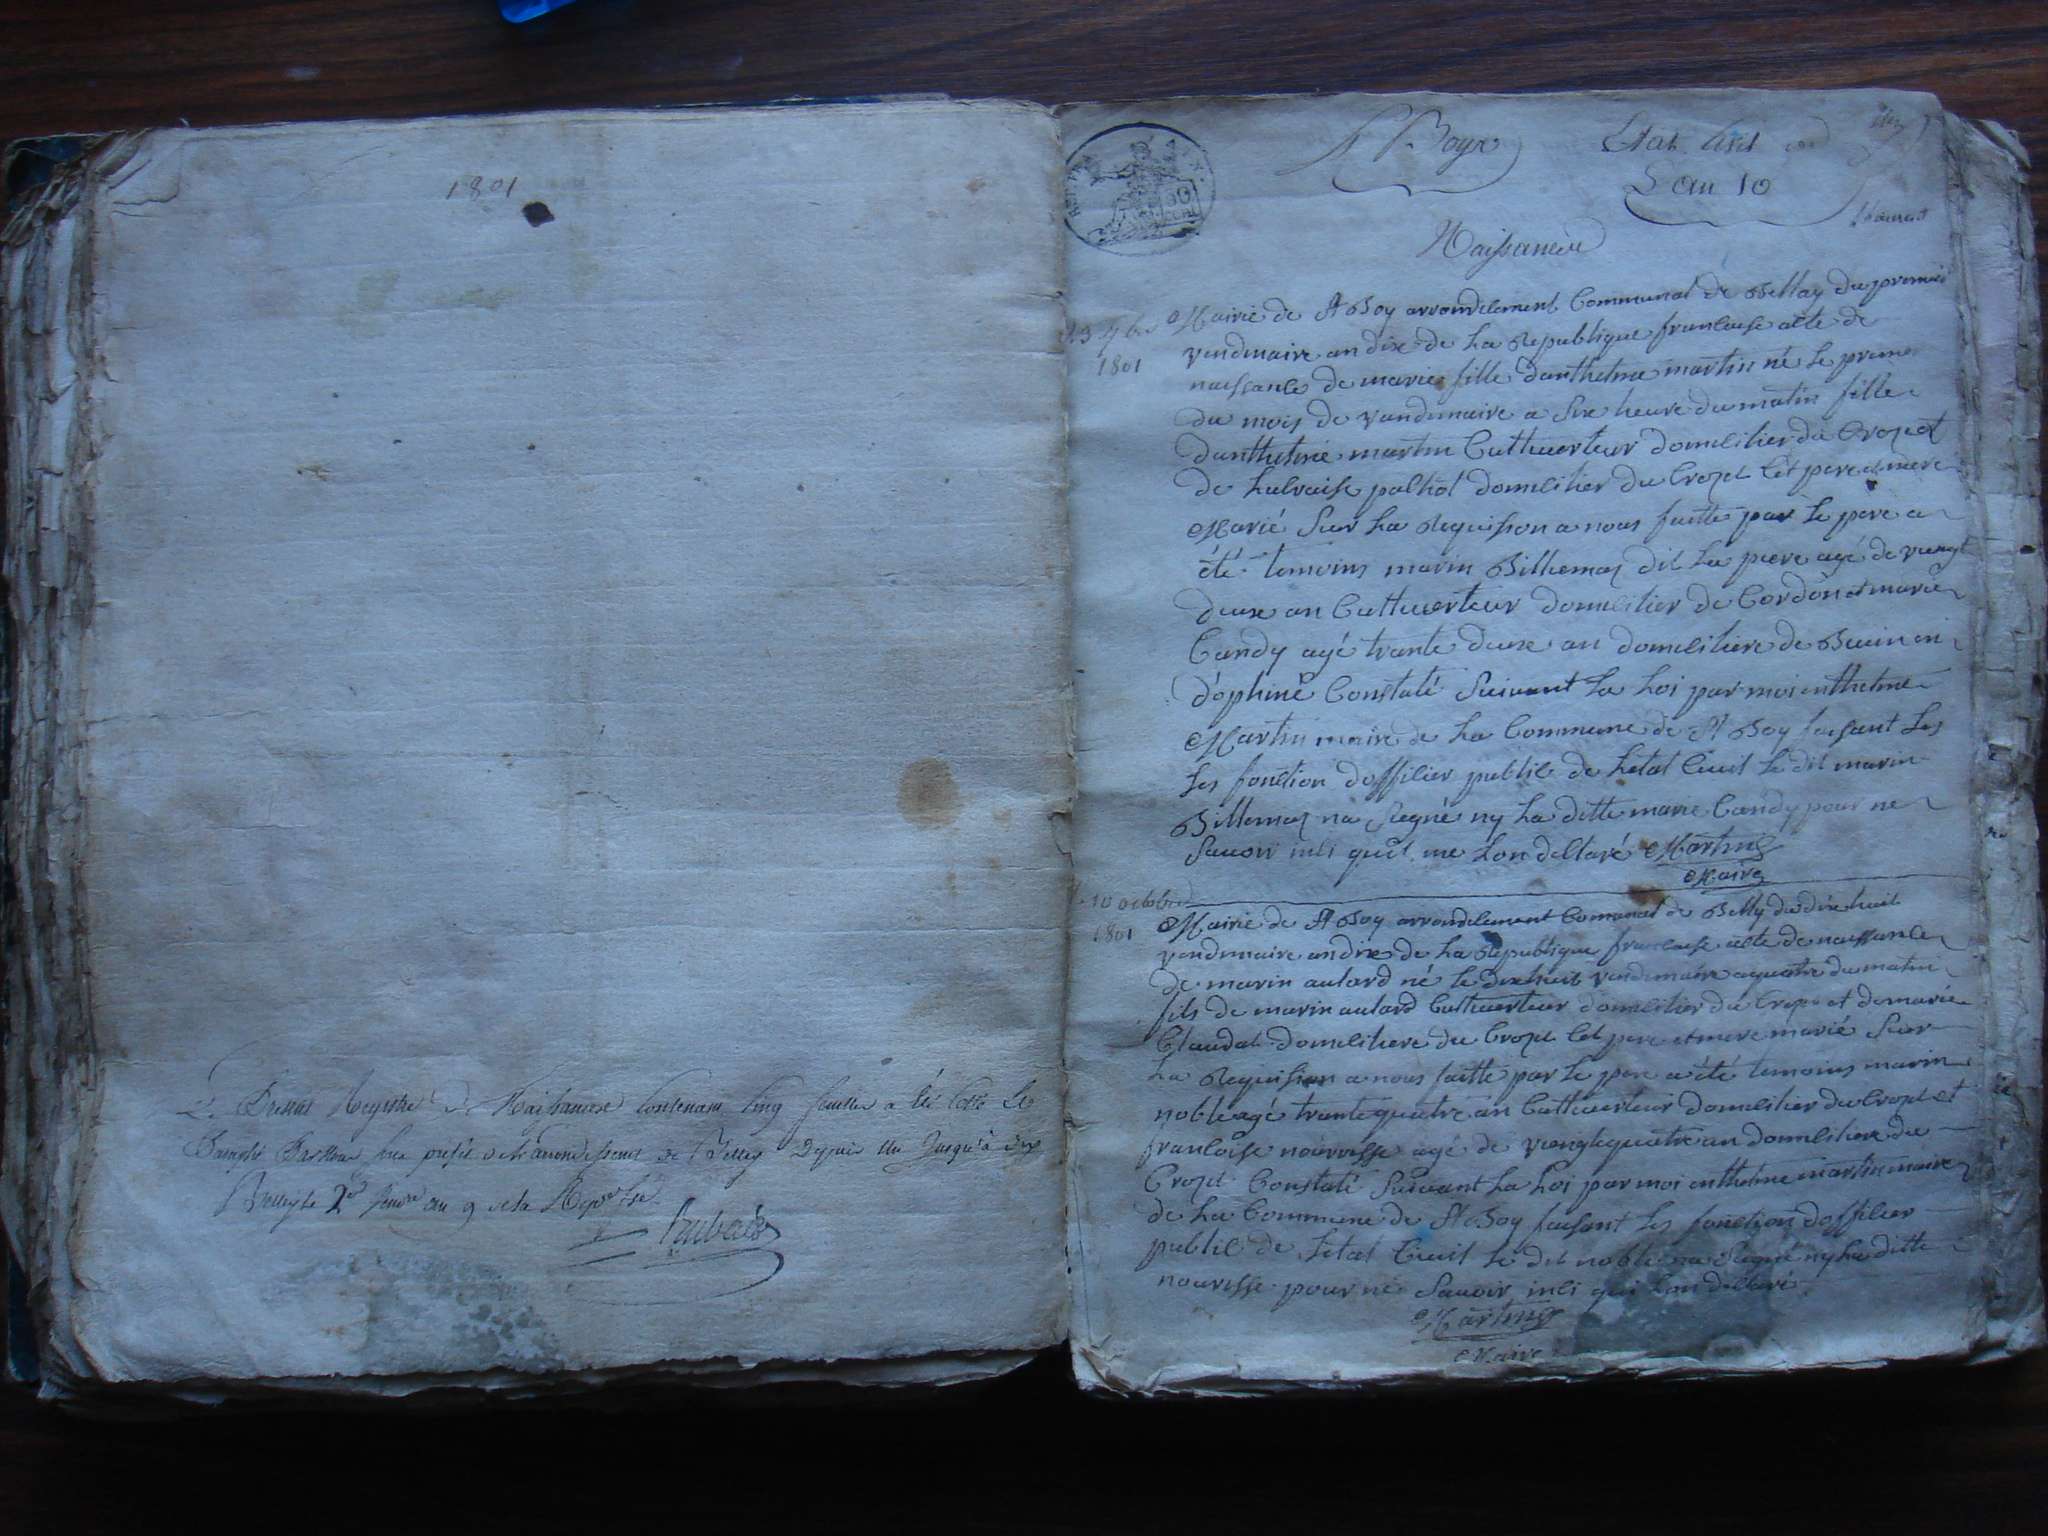 1801
Le Present Registre de Naissances Contenant Cinq feuillet a été Cotté Et
Paraphé Par Nous sous prefet de l'arrondissement de Belley Depuis un Jusqu'à dix
Belley le an 9 de la Rep
St Boys
Etat Civil
L an 10
Naissances
1801
Mairie de St Boy arrondilement Communal de Bellay du premier
vendmaire an dix de La Republique francaise acte de
naissance de marie fille danthelme martin né le premier
du mois de vandmaire a six heure du matin fille
danthelme martin Cultiverteur domicilier du Crozet
de domicilier du Crozet Cet pere et mere
Marié Sur La Requission a nous faitte par le pere a
été temoins marin Billiemaz dit La agé de viengt
deux an Cultiverteur domicilier de Cordon et marie
Candy agé trante deux an domiciliere de en
dophiné Constaté Suivant La Loi par moi enthelme
Martin maire de La Commune de St Boy faisant Les
Les fonction dofficier public de Letat Civil Le dit marin
Billiemaz na Segné ny La ditte marie Candy pour ne
Savoir inci quil me Lon declaré Martin
Maire
10 octobre
1801
Mairie de St Boy arrondilement Comunal de Belly du dix huit
vendmaire an dix de La Republique francaise acte de naissance
de marin autard né le dix huit vendmaire a quatre du matin
fils de marin autard Cultiverteur domicilier du Crozet et de marie
Claudat domiciliere du Crozet Cet pere et mere marié Sur
La Requision a nous faitte par Le pere a été temoins marin
noble agé trante quatre an Cultiverteur domicilier du Crozet et
francoise nourisse agé de viengt quatre an domiciliere du
Crozet Constaté Suivant La Loi par moi enthelme martin maire
de La Commune de St Boy faisant Les fonction dofficier
public de Letat Civil Le dit noble na Segné ny La ditte
nourisse pour ne Savoir inci qui Lon declaré
Martin
Maire